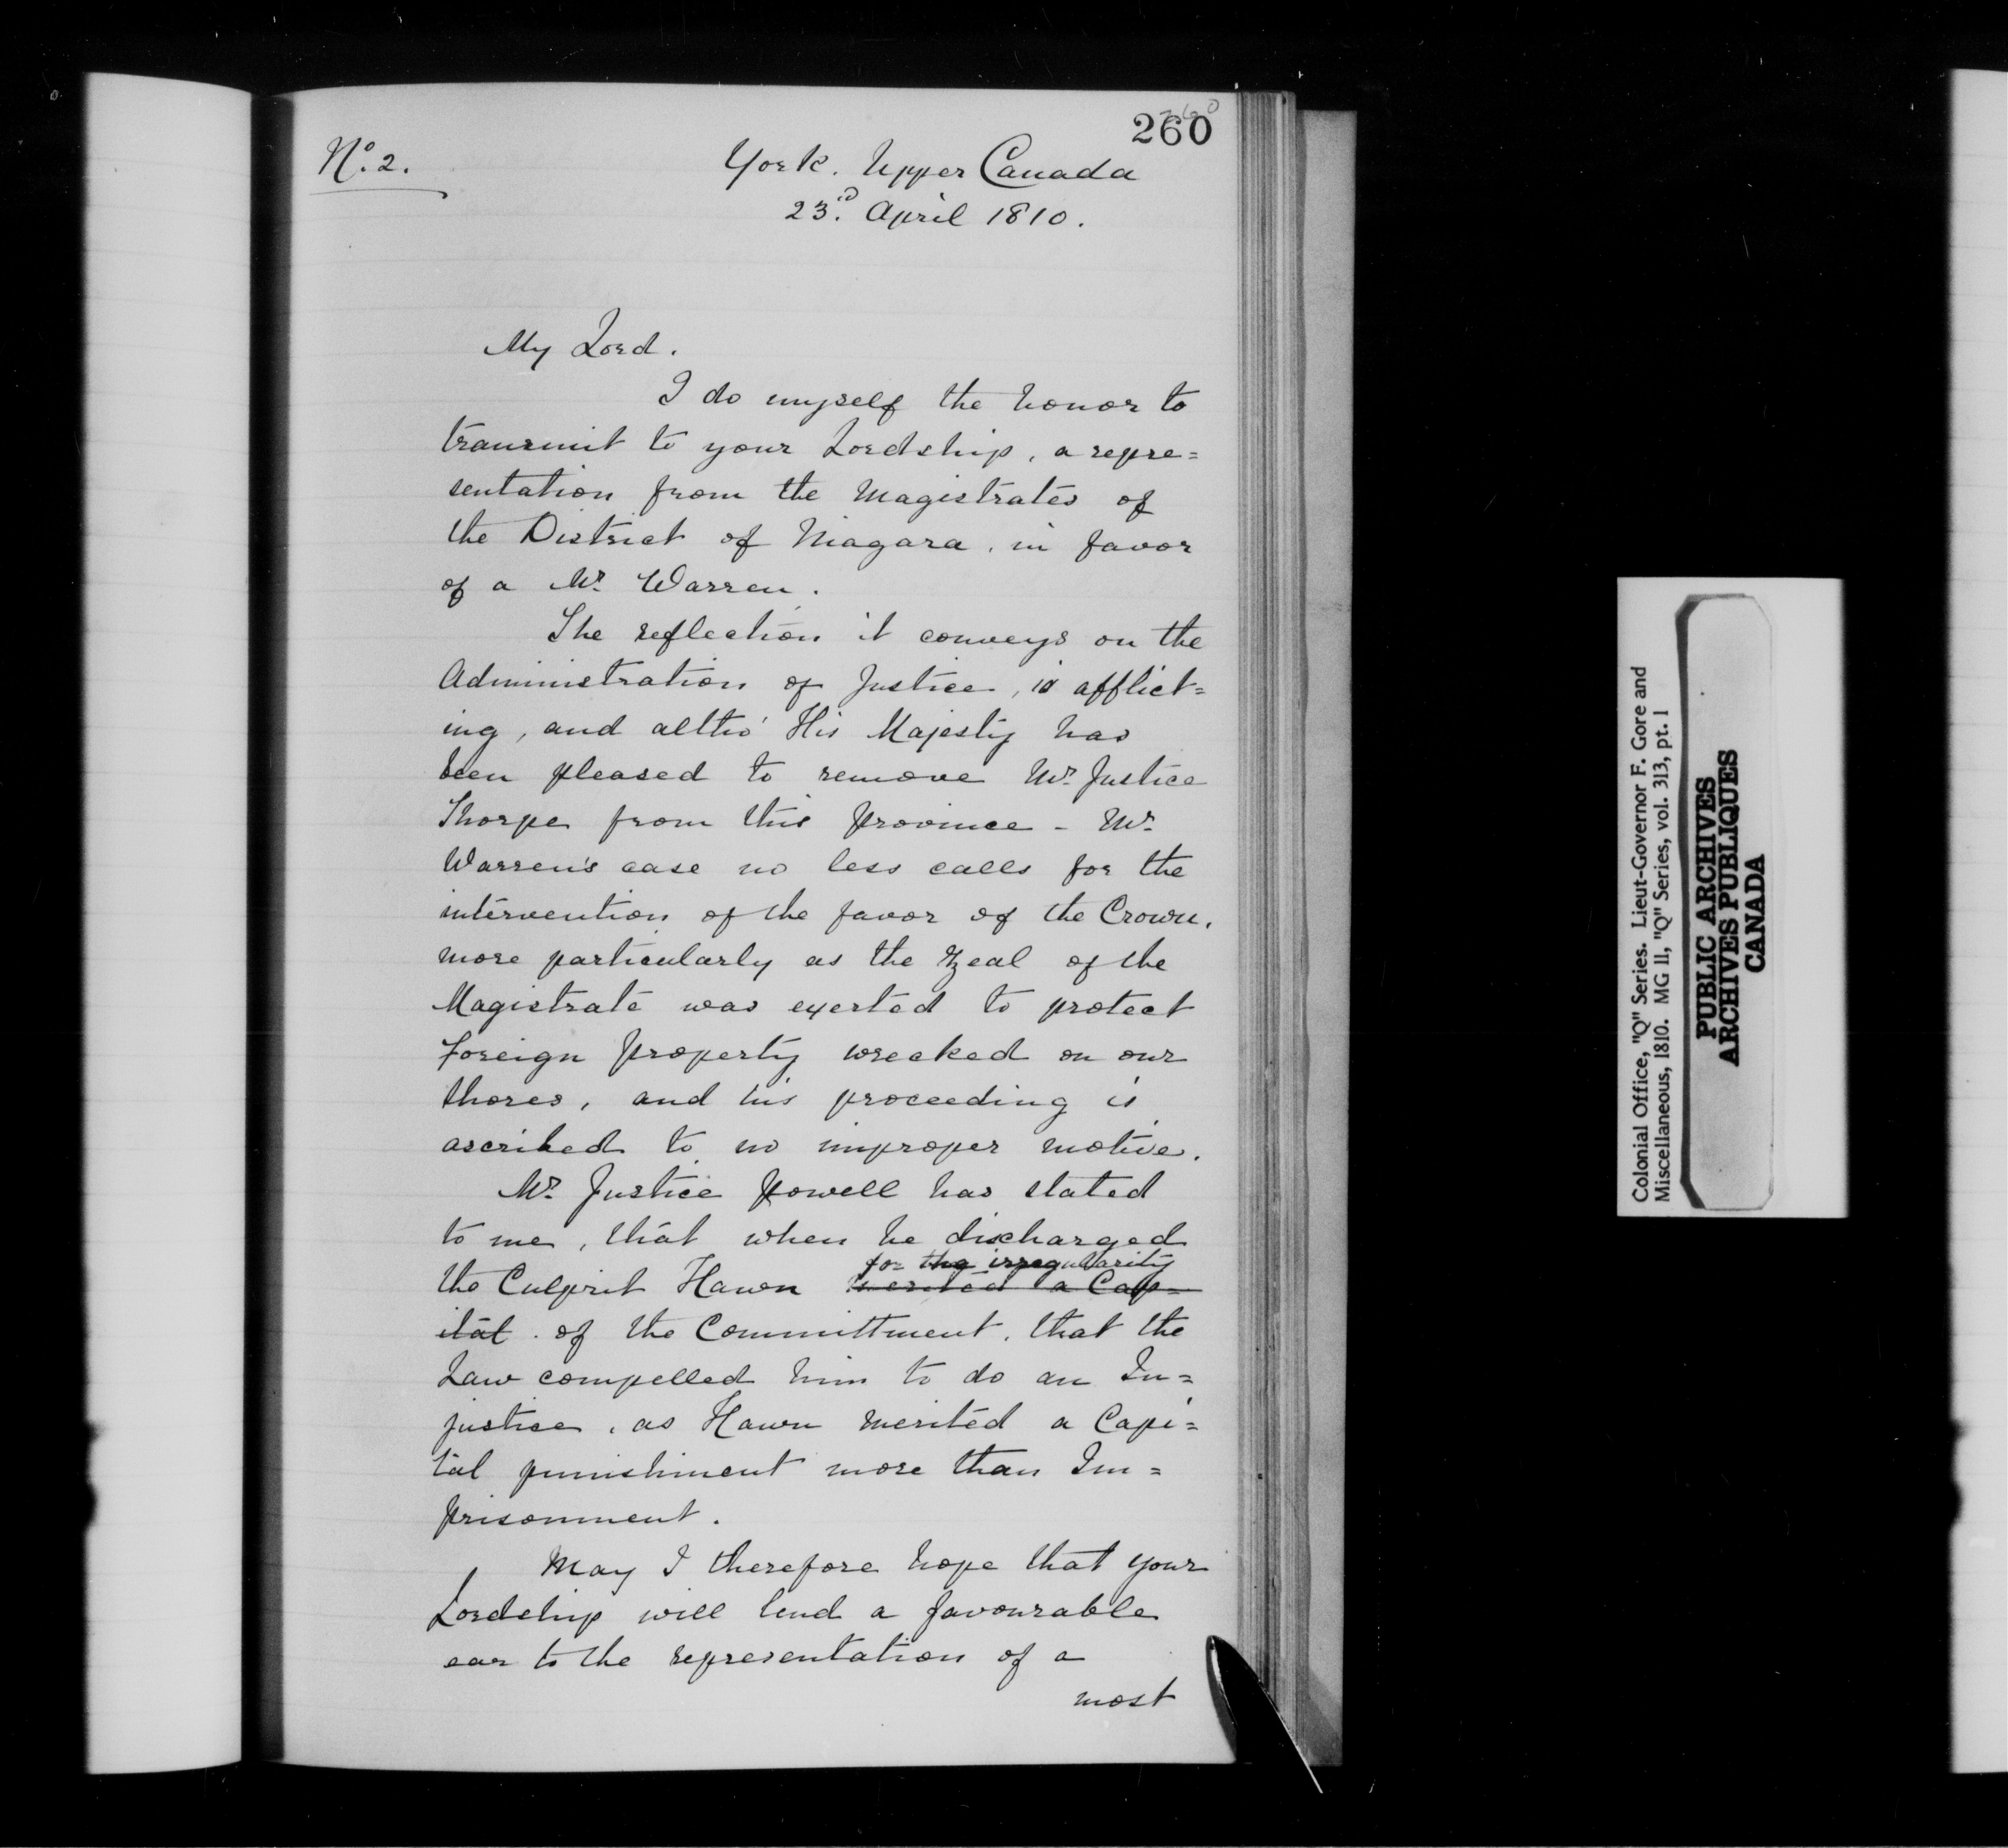 260
260
No. 2.
York. Upper Canada
23d. April 1810.
My Lord.
I do myself the honor to
transmit to your Lordship, a repre=
sentation from the Magistrates of
the District of Niagara, in favor
of a Mr. Warren.
The reflection it conveys on the
Administration of Justice, is afflict=
ing, and altho' His Majesty has
been pleased to remove Mr. Justice
Thorpe from this Province - Mr.
Warren's case no less calls for the
intervention of the favor of the Crown,
more particularly as the Zeal of the
Magistrate was exerted to protect
foreign Property wrecked on our
shores, and his proceeding is
ascribed to no improper motive.
Mr. Justice Powell has stated
to me, that when he discharged
for the irregularity
the Culprit Hawn merited a Cap-
ital. of the Committment, that the
Law compelled him to do an In=
justice, as Hawn merited a Capi=
tal punishment more than Im=
prisonment.
May I therefore hope that your
Lordship will lend a favourable
ear to the representation of a
most
Colonial Office, "Q" Series. Lieut-Governor F. Gore and
Miscellaneous, 1810. MG 11, "Q" Series, vol. 313, pt. 1
PUBLIC ARCHIVES
ARCHIVES PUBLIQUES
CANADA